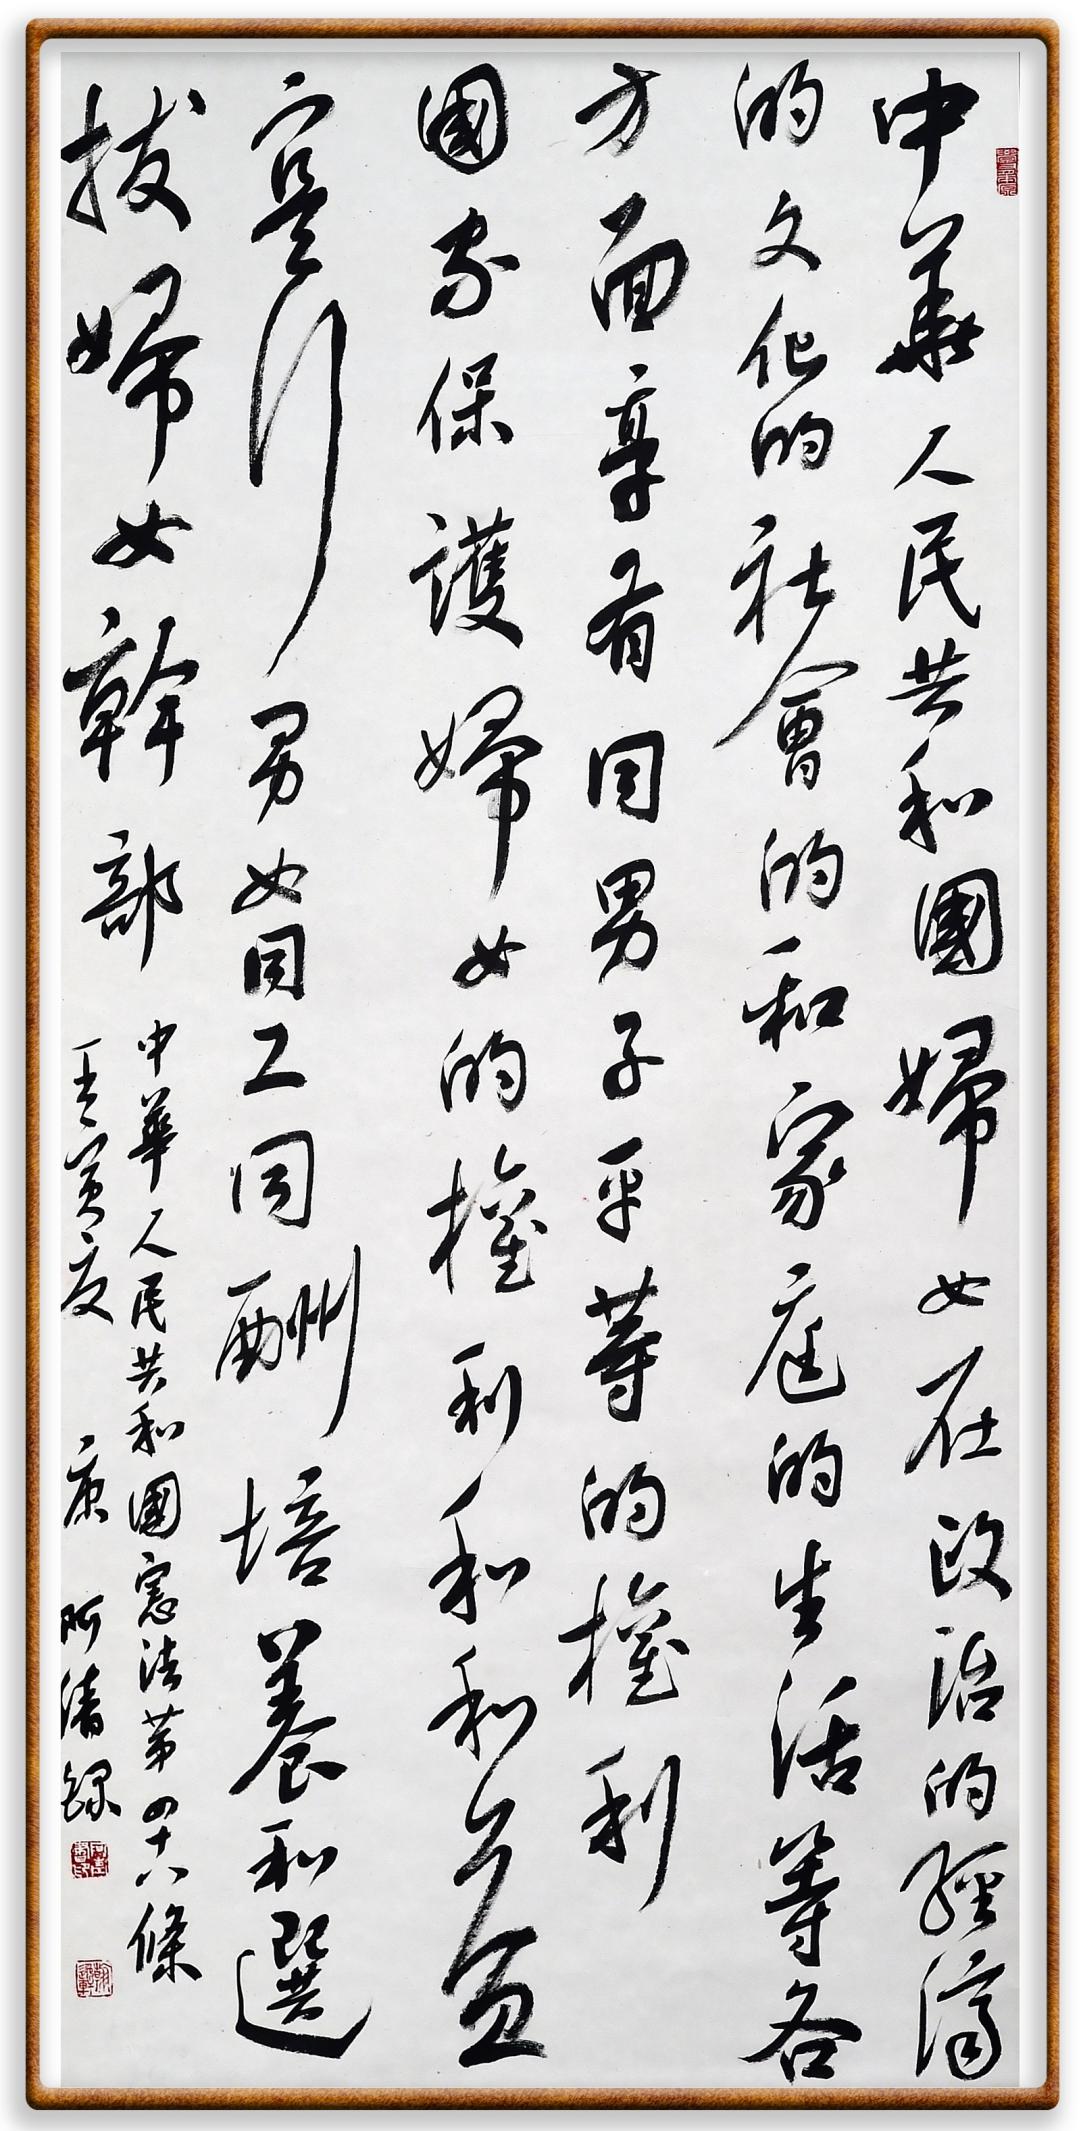 中華人民共和國婦女在政治的經濟
的文化的社會的和家庭的生活等各
方面享有同男子平等的權利
國家保護婦女的權利和利益
實行男女同工同酬培養和選
拔婦女幹部
中華人民共和國憲法第四十八條
壬寅夏 康阿清錄